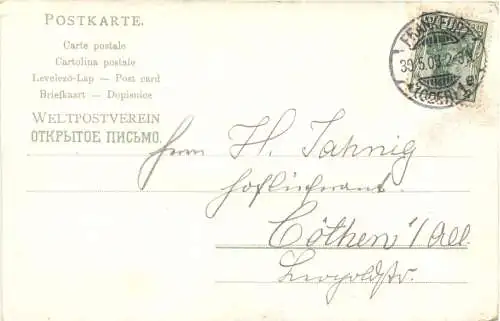 POSTKARTE.
Carte postale
Cartolina postale
Levelező-Lap — Post card
Briefkaart — Dopisnice
WELTPOSTVEREIN
ОТКРЫТОЕ ПИСЬМО.
FRANKFURT
(ODER)
Herrn H. Jahnig
Hoflieferant.
Cöthen i/All.
Leopoldstr.